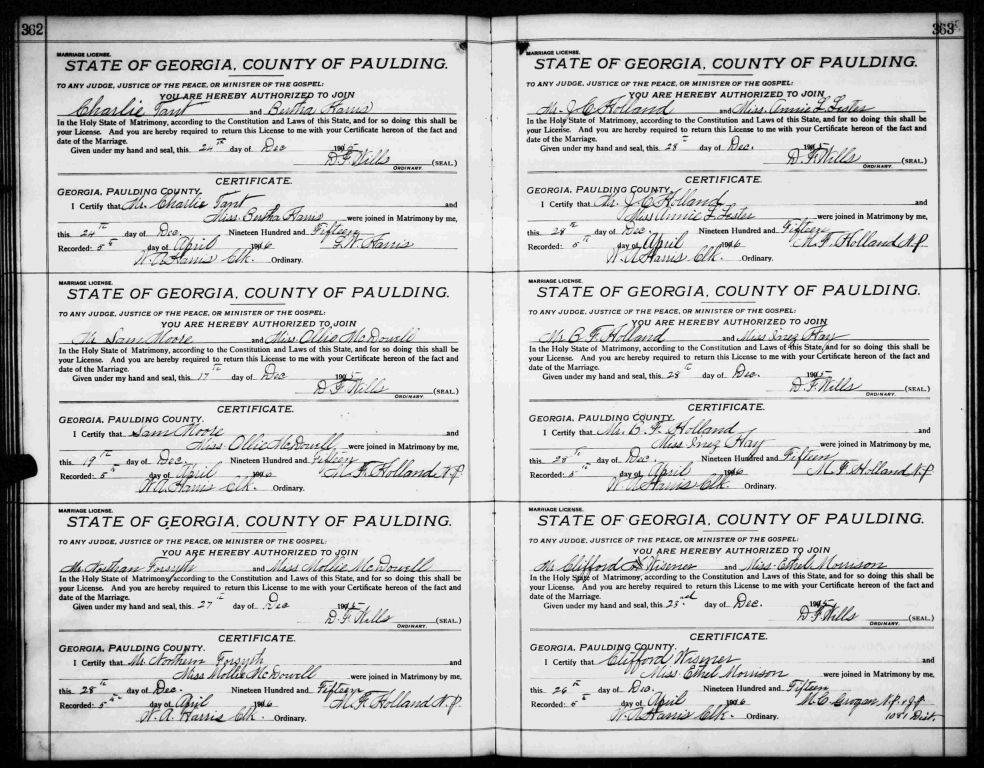 362
MARRIAGE LICENSE.
STATE OF GEORGIA, COUNTY OF PAULDING.
TO ANY JUDGE, JUSTICE OF THE PEACE, OR MINISTER OF THE GOSPEL:
YOU ARE HEREBY AUTHORIZED TO JOIN
Charlie Tant and Bertha Harris
In the Holy State of Matrimony, according to the Constitution and Laws of this State, and for so doing this shall be
your License. And you are hereby required to return this License to me with your Certificate hereon of the fact and
date of the Marriage.
Given under my hand and seal, this 24th day of Dec 1915
D. F. Wills (SEAL.)
ORDINARY.
CERTIFICATE.
GEORGIA, PAULDING COUNTY.
I Certify that Mr. Charlie Tant and
Miss. Bertha Harris were joined in Matrimony by me,
this 24th day of Dec. Nineteen Hundred and Fifteen
Recorded: 5th day of April 1916 Harris
W. A. Harris Clk. Ordinary.
MARRIAGE LICENSE.
STATE OF GEORGIA, COUNTY OF PAULDING.
TO ANY JUDGE, JUSTICE OF THE PEACE, OR MINISTER OF THE GOSPEL:
YOU ARE HEREBY AUTHORIZED TO JOIN
Mr. Sam Moore and Miss Ollie McDowell
In the Holy State of Matrimony, according to the Constitution and Laws of this State, and for so doing this shall be
your License. And you are hereby required to return this License to me with your Certificate hereon of the fact and
date of the Marriage.
Given under my hand and seal, this 17th day of Dec 1915
D. F. Wills (SEAL.)
ORDINARY.
CERTIFICATE.
GEORGIA, PAULDING COUNTY.
I Certify that Sam Moore and
Miss. Ollie McDowell were joined in Matrimony by me,
this 19th day of Dec. Nineteen Hundred and Fifteen
Recorded: 5th day of April 1916 M. F. Holland N.P.
W. A. Harris Clk. Ordinary.
MARRIAGE LICENSE.
STATE OF GEORGIA, COUNTY OF PAULDING.
TO ANY JUDGE, JUSTICE OF THE PEACE, OR MINISTER OF THE GOSPEL:
YOU ARE HEREBY AUTHORIZED TO JOIN
Mr. Forsyth and Miss Mollie McDowell
In the Holy State of Matrimony, according to the Constitution and Laws of this State, and for so doing this shall be
your License. And you are hereby required to return this License to me with your Certificate hereon of the fact and
date of the Marriage.
Given under my hand and seal, this 27th day of Dec 1915
D. F. Wills (SEAL.)
ORDINARY.
CERTIFICATE.
GEORGIA, PAULDING COUNTY.
I Certify that Mr. Northern Forsyth and
Miss Mollie McDowell were joined in Matrimony by me,
this 28th day of Dec. Nineteen Hundred and Fifteen
Recorded: 5th day of April 1916 M. F. Holland N.P.
W. A. Harris Clk. Ordinary.
363
MARRIAGE LICENSE.
STATE OF GEORGIA, COUNTY OF PAULDING.
TO ANY JUDGE, JUSTICE OF THE PEACE, OR MINISTER OF THE GOSPEL:
YOU ARE HEREBY AUTHORIZED TO JOIN
Mr. J. C. Holland and Miss. Annie L Lester
In the Holy State of Matrimony, according to the Constitution and Laws of this State, and for so doing this shall be
your License. And you are hereby required to return this License to me with your Certificate hereon of the fact and
date of the Marriage.
Given under my hand and seal, this 28th day of Dec. 1915
D. F. Wills (SEAL.)
ORDINARY.
CERTIFICATE.
GEORGIA, PAULDING COUNTY.
I Certify that Mr. J. C. Holland and
Miss Annie L Lester were joined in Matrimony by me,
this 28th day of Dec. Nineteen Hundred and Fifteen
Recorded: 5th day of April 1916 M. F. Holland N.P.
W. A. Harris Clk. Ordinary.
MARRIAGE LICENSE.
STATE OF GEORGIA, COUNTY OF PAULDING.
TO ANY JUDGE, JUSTICE OF THE PEACE, OR MINISTER OF THE GOSPEL:
YOU ARE HEREBY AUTHORIZED TO JOIN
Mr. B. F. Holland and Miss Inez Hay
In the Holy State of Matrimony, according to the Constitution and Laws of this State, and for so doing this shall be
your License. And you are hereby required to return this License to me with your Certificate hereon of the fact and
date of the Marriage.
Given under my hand and seal, this 28th day of Dec. 1915
D. F. Wills (SEAL.)
ORDINARY.
CERTIFICATE.
GEORGIA, PAULDING COUNTY.
I Certify that Mr. B. F. Holland and
Miss Inez Hay were joined in Matrimony by me,
this 28th day of Dec. Nineteen Hundred and Fifteen
Recorded: 5th day of April 1916 M. F. Holland N.P.
W. A. Harris Clk. Ordinary.
MARRIAGE LICENSE.
STATE OF GEORGIA, COUNTY OF PAULDING.
TO ANY JUDGE, JUSTICE OF THE PEACE, OR MINISTER OF THE GOSPEL:
YOU ARE HEREBY AUTHORIZED TO JOIN
Mr. Clifford Wismer and Miss. Ethel Morrison
In the Holy State of Matrimony, according to the Constitution and Laws of this State, and for so doing this shall be
your License. And you are hereby required to return this License to me with your Certificate hereon of the fact and
date of the Marriage.
Given under my hand and seal, this 23rd day of Dec. 1915
D. F. Wills (SEAL.)
ORDINARY.
CERTIFICATE.
GEORGIA, PAULDING COUNTY.
I Certify that Clifford Wismer and
Miss. Ethel Morrison were joined in Matrimony by me,
this 26th day of Dec. Nineteen Hundred and Fifteen
Recorded: 5th day of April 1916 M. C. Grogan N.P. & J.P.
W. A. Harris Clk. Ordinary. 1081 Dist.